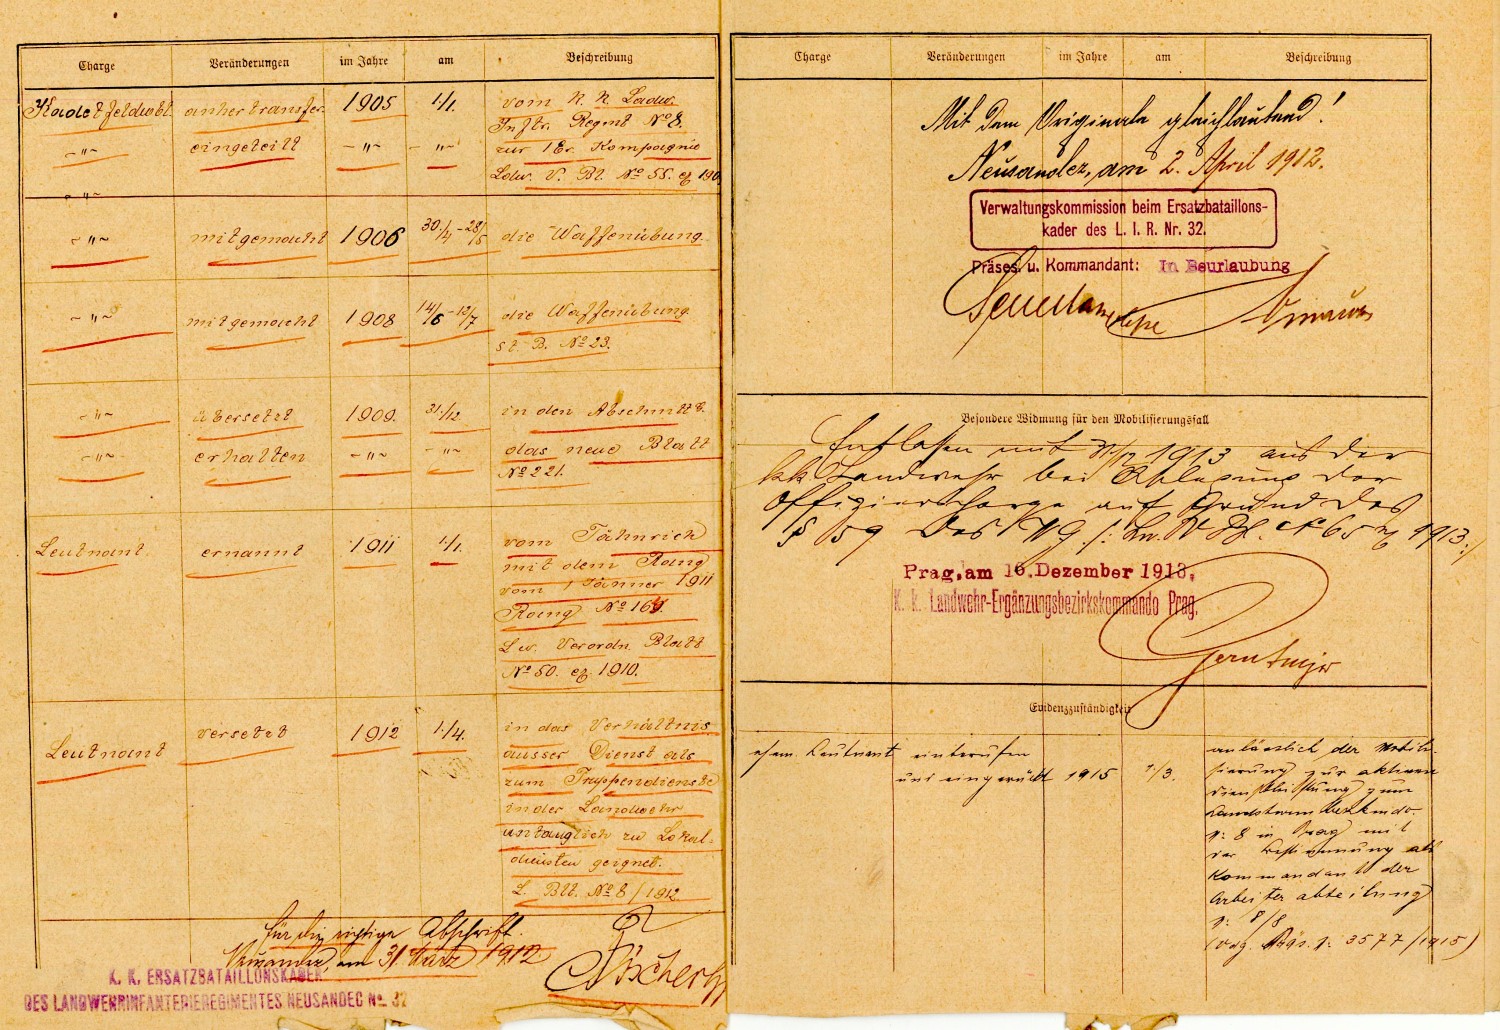 Charge Veränderungen im Jahre am Beschreibung
Kadetfeldwbl. anhertransfer. 1905 1/1. vom K. K. Ladw.
Inftr. Regmt No 8.
~"~ eingeteilt ~"~ ~"~ zur 1 Er. Kompagnie
Ldw. V. Bl. No 55. ex 190
~"~
~"~ mitgemacht 1906 30/4-28/5 die Waffenübung.
~"~ mitgemacht 1908 14/6-13/7 die Waffenübung
St. B. No 23.
~"~ übersetzt 1909. 31/12 in den Abschnitt E.
~"~ erhalten ~"~ ~"~ das neue Blatt
No 221.
Leutnant. ernannt 1911 1/1. vom Fähnrich
mit dem Rang
vom 1 Jänner 1911
Rang No 164.
Lw. Verordn. Blatt
No 50. ex. 1910.
Leutnant versetzt 1912 1/4. in das Verhältnis
ausser Dienst als
zum Truppendienste
in der Landwehr
untauglich zu Lokal-
diensten geignet.
L. Bltt. No 8/1912
für die richtige Abschrift.
am 31 März 1912
K. K. ERSATZBATAILLONSKADER
DES LANDWEHRINFANTERIEREGIMENTES NEUSANDEC No. 32
Charge Veränderungen im Jahre am Beschreibung
Mit dem Originale gleichlautend!
Neusandez, am 2. April 1912.
Verwaltungskommission beim Ersatzbataillons-
kader des L. I. R. Nr. 32.
Präses u. Kommandant: In Beurlaubung
Besondere Widmung für den Mobilisierungsfall
Entlassen mit 31/12 1913 aus der
kk. Landwehr bei Ablegung der
Offizierscharge auf Grund des
§ 59 des WG /: Lw. V Bl. No 65 ex 1913:/
Prag, am 16. Dezember 1913.
K. k. Landwehr-Ergänzungsbezirkskommando Prag.
Evidenzzuständigkeit
ehem. Leutnant einberufen
und eingerückt 1915 1/3. anlässlich der Mobili-
sierung zur aktiven
Dienstleistung zum
Landsturmbezkmdo.
N: 8 in Prag mit
der Bestimmung als
Kommandant der
Arbeiterabteilung
N: 8/8
(Vdg. Präs. N: 3577/1915)